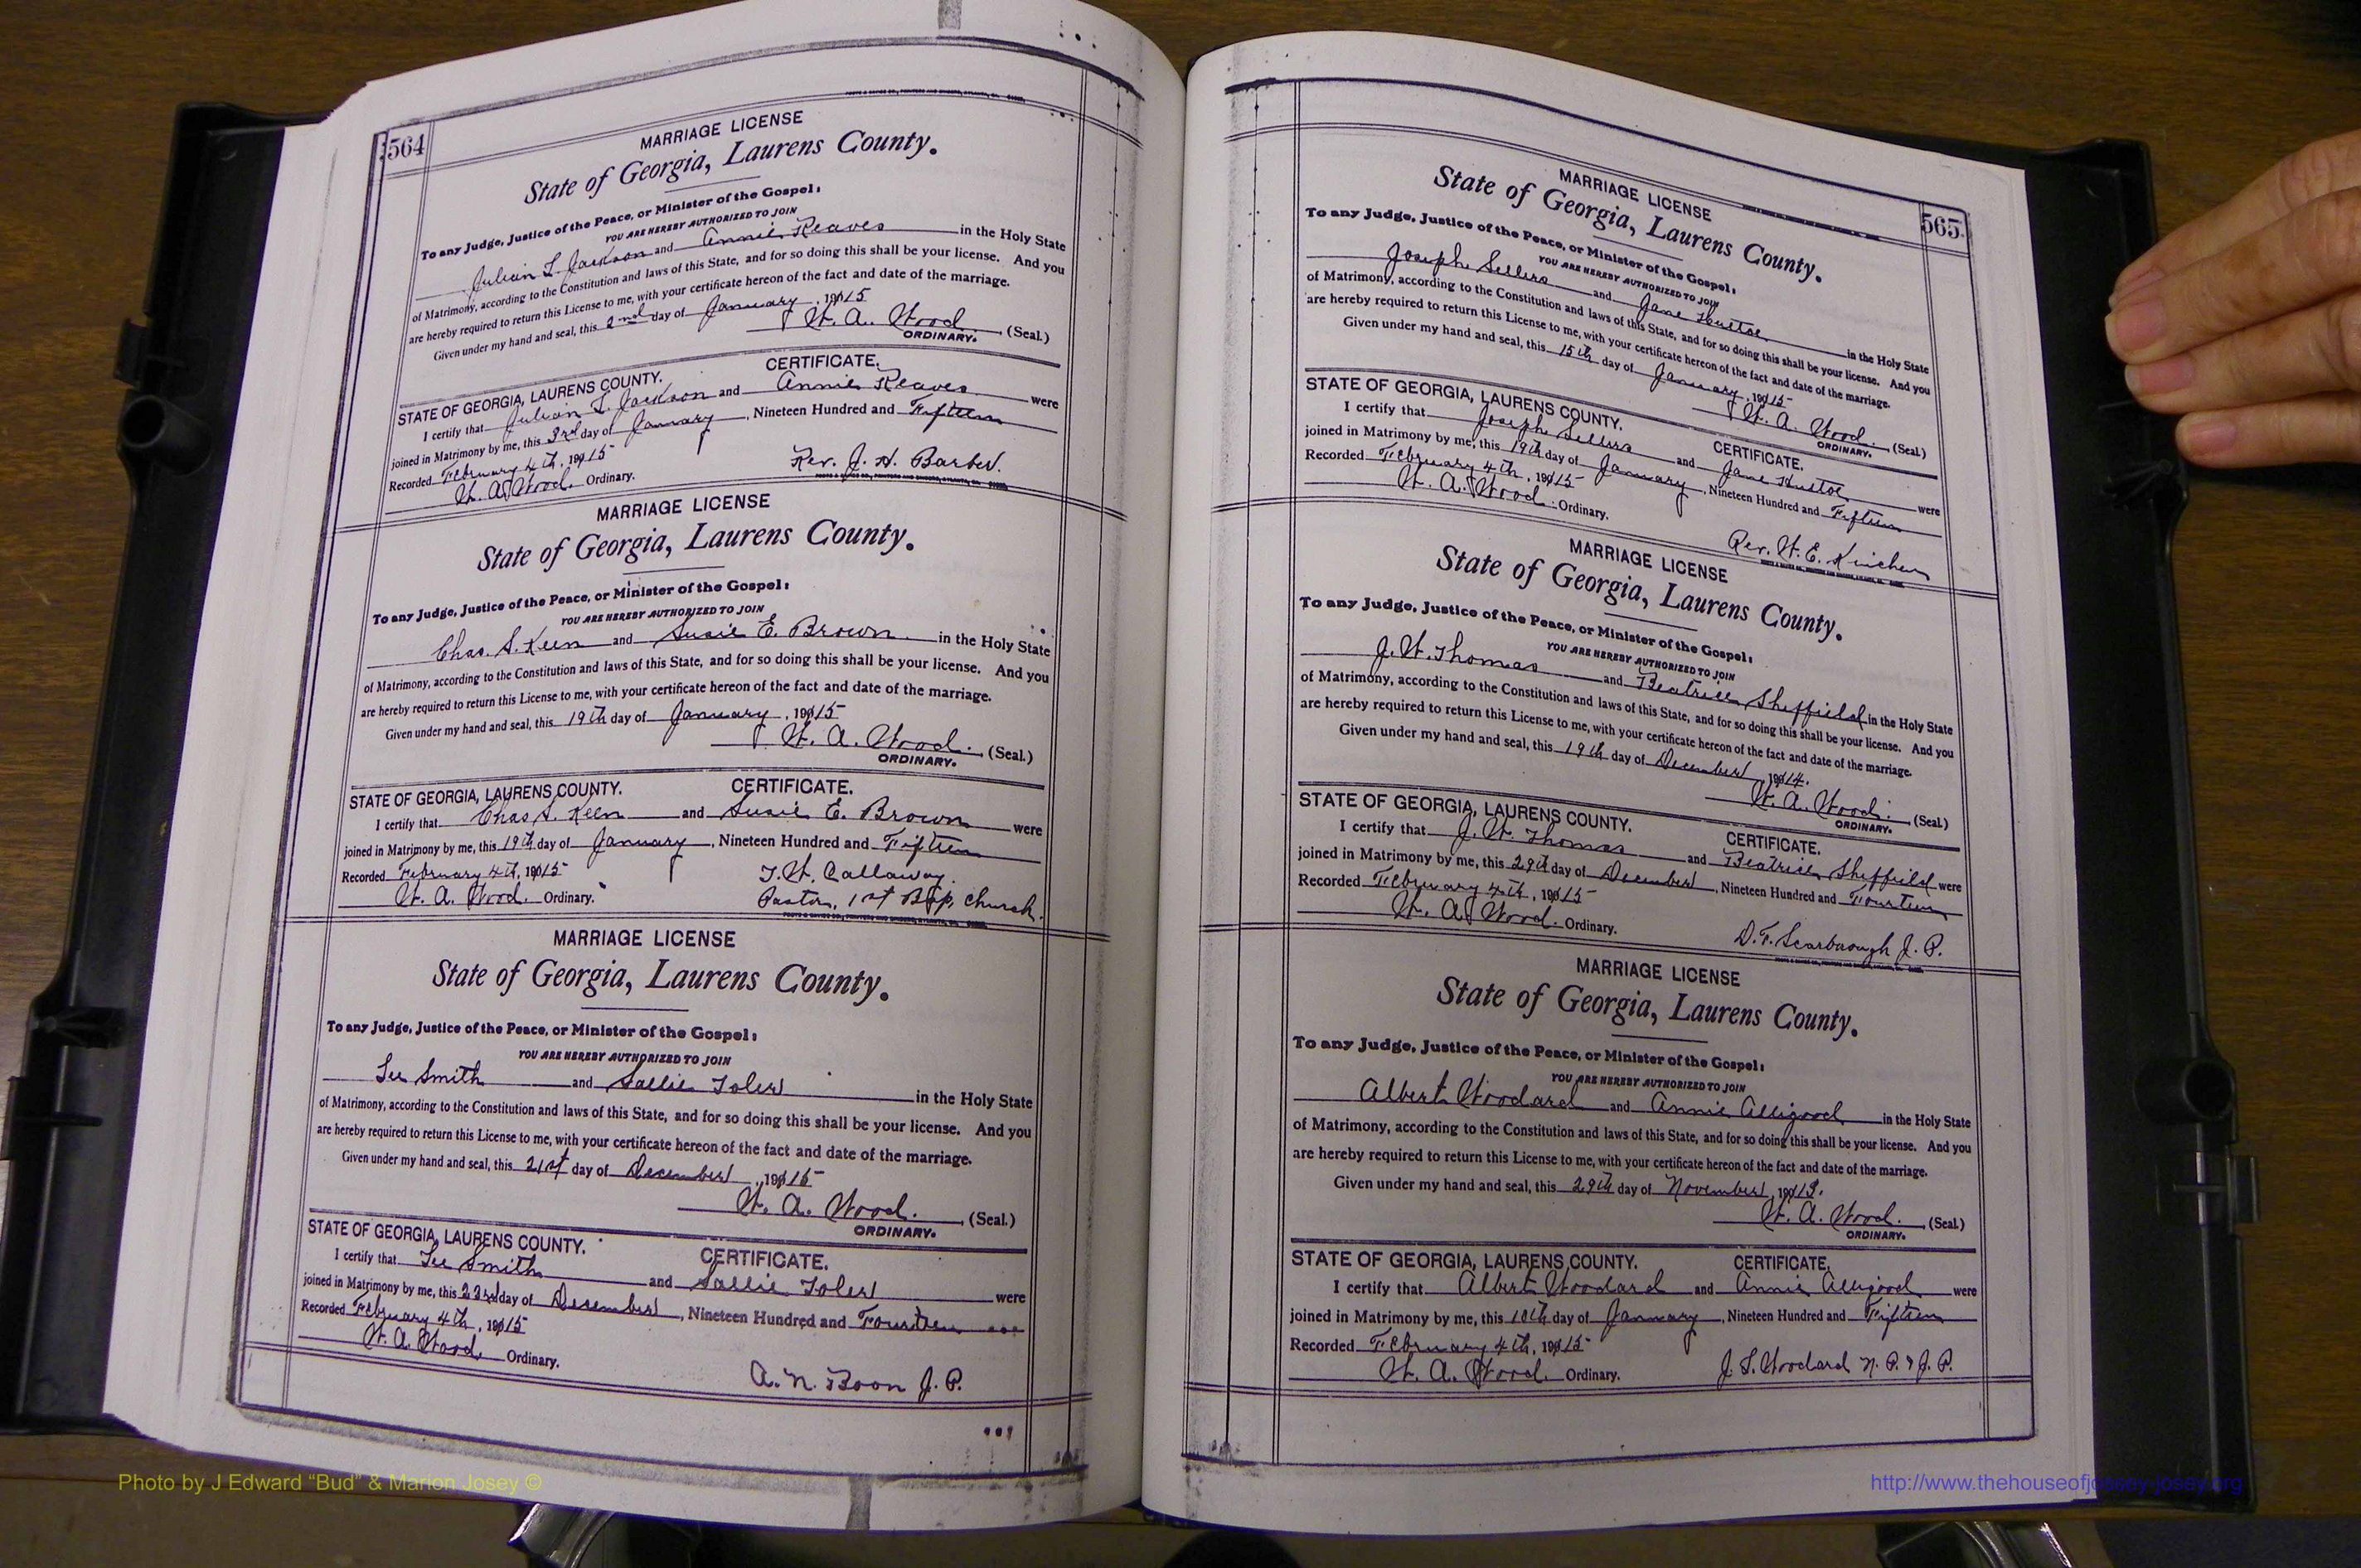 564
MARRIAGE LICENSE
State of Georgia, Laurens County.
To any Judge, Justice of the Peace, or Minister of the Gospel:
YOU ARE HEREBY AUTHORIZED TO JOIN
Julian L. Jackson and Annie Reaves in the Holy State
of Matrimony, according to the Constitution and laws of this State, and for so doing this shall be your license. And you
are hereby required to return this License to me, with your certificate hereon of the fact and date of the marriage.
Given under my hand and seal, this 2nd day of January, 1915
W. A. Wood. (Seal.)
ORDINARY.
CERTIFICATE.
STATE OF GEORGIA, LAURENS COUNTY.
I certify that Julian L. Jackson and Annie Reaves were
joined in Matrimony by me, this 3rd day of January, Nineteen Hundred and Fifteen
Recorded February 4th, 1915
W. A. Wood. Ordinary.
Rev. J. H. Barber.
MARRIAGE LICENSE
State of Georgia, Laurens County.
To any Judge, Justice of the Peace, or Minister of the Gospel:
YOU ARE HEREBY AUTHORIZED TO JOIN
Chas. S. Keen and Susie E. Brown in the Holy State
of Matrimony, according to the Constitution and laws of this State, and for so doing this shall be your license. And you
are hereby required to return this License to me, with your certificate hereon of the fact and date of the marriage.
Given under my hand and seal, this 19th day of January, 1915
W. A. Wood. (Seal.)
ORDINARY.
STATE OF GEORGIA, LAURENS COUNTY. CERTIFICATE.
I certify that Chas S. Keen and Susie E. Brown were
joined in Matrimony by me, this 19th day of January, Nineteen Hundred and Fifteen
Recorded February 4th, 1915
W. A. Wood. Ordinary.
T. W. Callaway.
Pastor, 1st Bap, Church.
MARRIAGE LICENSE
State of Georgia, Laurens County.
To any Judge, Justice of the Peace, or Minister of the Gospel:
YOU ARE HEREBY AUTHORIZED TO JOIN
Lee Smith and Sallie Toler in the Holy State
of Matrimony, according to the Constitution and laws of this State, and for so doing this shall be your license. And you
are hereby required to return this License to me, with your certificate hereon of the fact and date of the marriage.
Given under my hand and seal, this 21st day of December, 1915
W. A. Wood. (Seal.)
ORDINARY.
STATE OF GEORGIA, LAURENS COUNTY. CERTIFICATE.
I certify that Lee Smith and Sallie Toler were
joined in Matrimony by me, this 23rd day of December, Nineteen Hundred and Fourteen
Recorded February 4th, 1915
W. A. Wood. Ordinary.
A. N. Boon J. P.
565
MARRIAGE LICENSE
State of Georgia, Laurens County.
To any Judge, Justice of the Peace, or Minister of the Gospel:
YOU ARE HEREBY AUTHORIZED TO JOIN
Joseph Sellers and Jane in the Holy State
of Matrimony, according to the Constitution and laws of this State, and for so doing this shall be your license. And you
are hereby required to return this License to me, with your certificate hereon of the fact and date of the marriage.
Given under my hand and seal, this 15th day of January, 1915
W. A. Wood. (Seal)
ORDINARY.
STATE OF GEORGIA, LAURENS COUNTY. CERTIFICATE.
I certify that Joseph Sellers and Jane were
joined in Matrimony by me, this 19th day of January, Nineteen Hundred and Fifteen
Recorded February 4th, 1915
W. A. Wood. Ordinary.
Rev. W. E. Kinchen
MARRIAGE LICENSE
State of Georgia, Laurens County.
To any Judge, Justice of the Peace, or Minister of the Gospel:
YOU ARE HEREBY AUTHORIZED TO JOIN
J. W. Thomas and Beatrice Sheffield in the Holy State
of Matrimony, according to the Constitution and laws of this State, and for so doing this shall be your license. And you
are hereby required to return this License to me, with your certificate hereon of the fact and date of the marriage.
Given under my hand and seal, this 19th day of December, 1914.
W. A. Wood. (Seal)
ORDINARY.
STATE OF GEORGIA, LAURENS COUNTY. CERTIFICATE.
I certify that J. W. Thomas and Beatrice Sheffield were
joined in Matrimony by me, this 29th day of December, Nineteen Hundred and Fourteen
Recorded February 4th, 1915
W. A. Wood. Ordinary.
D. F. Scarborough J. P.
MARRIAGE LICENSE
State of Georgia, Laurens County.
To any Judge, Justice of the Peace, or Minister of the Gospel:
YOU ARE HEREBY AUTHORIZED TO JOIN
Albert Woodard and Annie Alligood in the Holy State
of Matrimony, according to the Constitution and laws of this State, and for so doing this shall be your license. And you
are hereby required to return this License to me, with your certificate hereon of the fact and date of the marriage.
Given under my hand and seal, this 29th day of November, 1913.
W. A. Wood. (Seal)
ORDINARY.
STATE OF GEORGIA, LAURENS COUNTY. CERTIFICATE.
I certify that Albert Woodard and Annie Alligood were
joined in Matrimony by me, this 10th day of January, Nineteen Hundred and Fifteen
Recorded February 4th, 1915
W. A. Wood. Ordinary.
J. S. Woodard N. P. & J. P.
Photo by J Edward “Bud” & Marion Josey ©
http://www.thehouseofjossey-josey.org